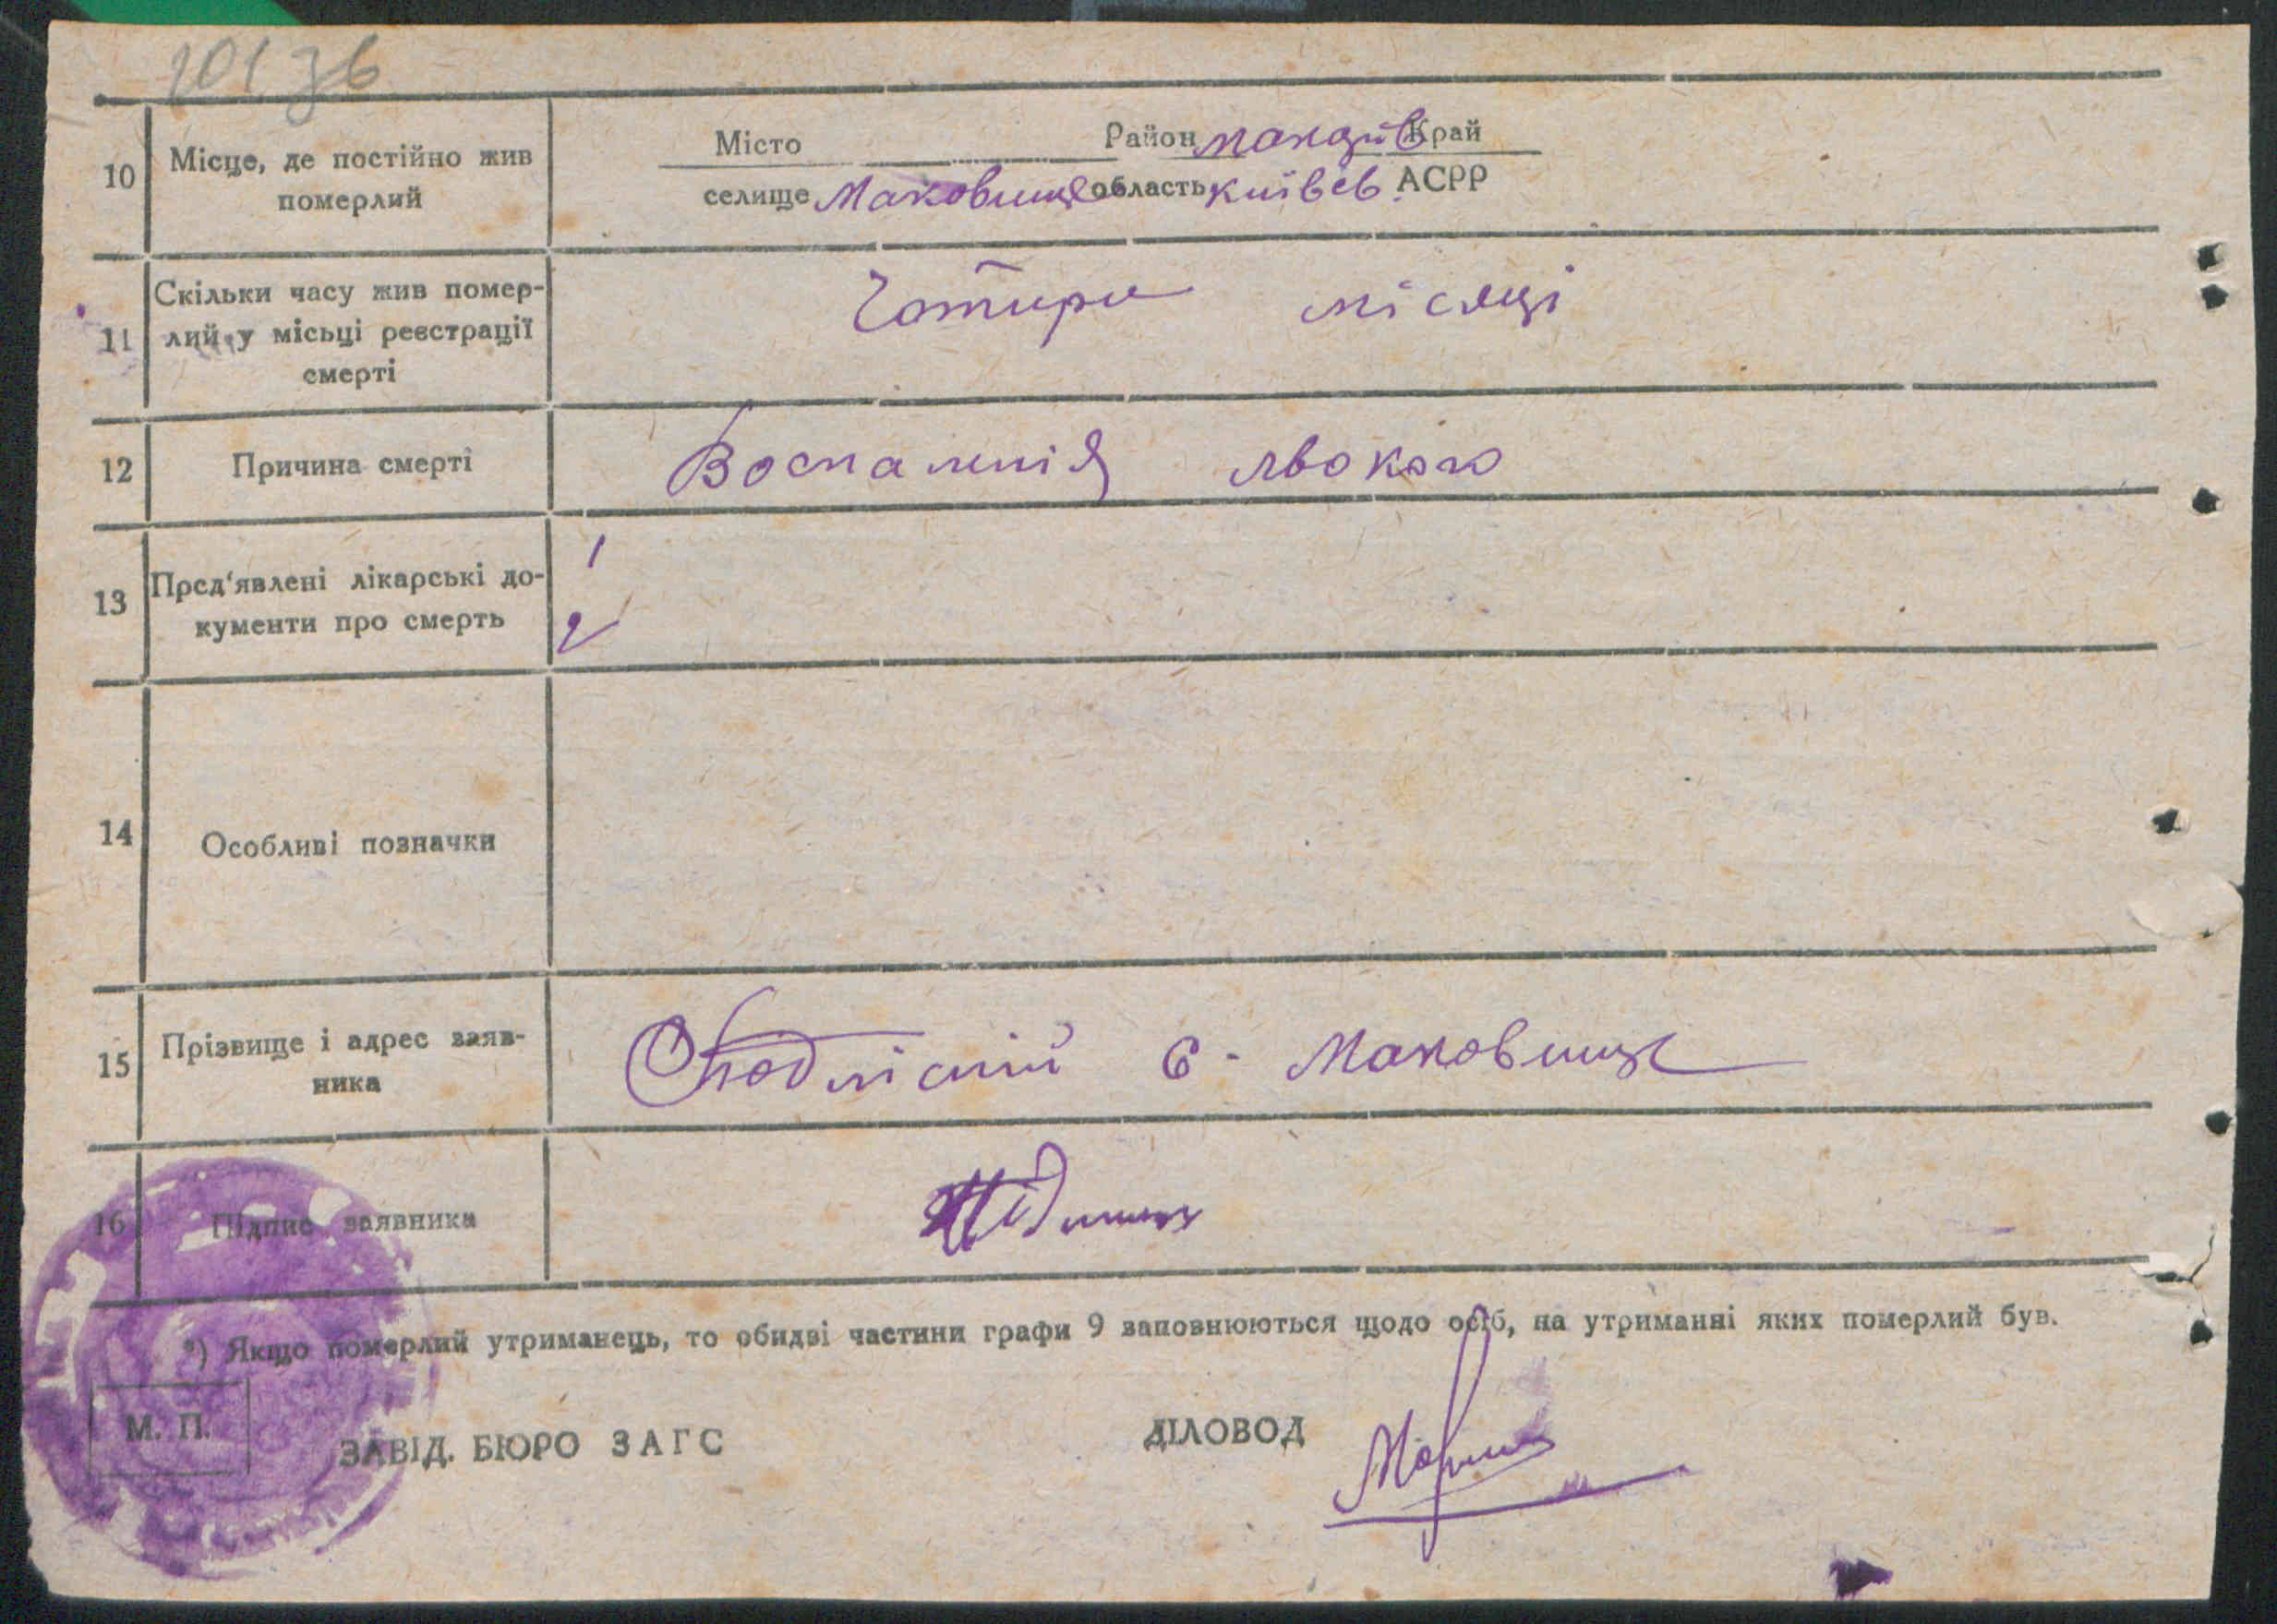 201 зв
10 Місце, де постійно жив померлий
Місто Район Край
селище Маковище область київсв. АСРР
11 Скільки часу жив помер-
лий у місьці реєстрації
смерті
Чотири місяці
12 Причина смерті
Воспаленія
13 Пред'явлені лікарські до-
кументи про смерть
1
2
14 Особливі позначки
15 Прізвище і адрес заяв-
ника
с. Маковище
16 Підпис заявника
*) Якщо померлий утриманець, то обидві частини графи 9 заповнюються щодо осіб, на утриманні яких померлий був.
М. П.
ЗАВІД. БЮРО ЗАГС
ДІЛОВОД